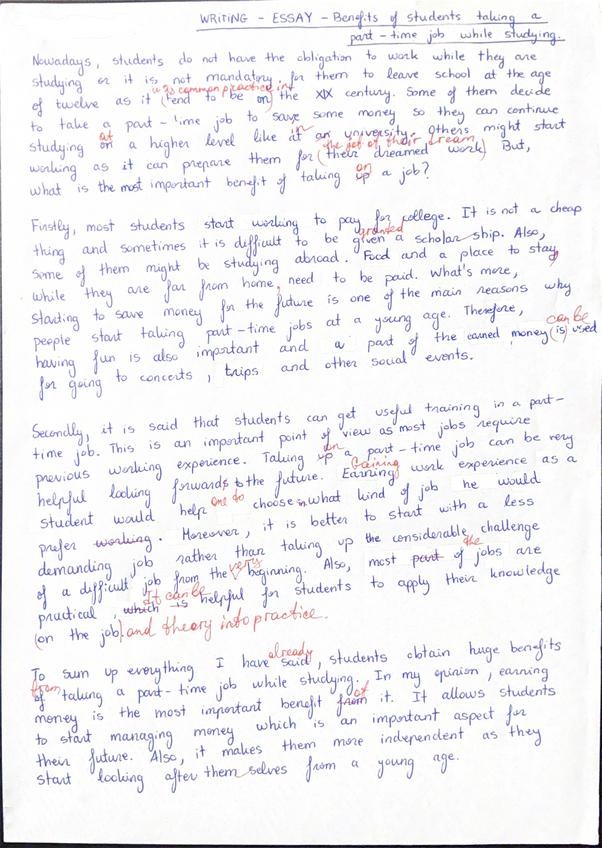 WRITING - ESSAY - Benefits of students taking a
part-time job while studying.
Nowadays, students do not have the obligation to work while they are
studying or it is not mandatory for them to leave school at the age
was common practice in
of twelve as it (tend to be on) the XIX century. Some of them decide
to take a part-time job to save some money so they can continue
at in
studying on a higher level like at an university. Others might start
the job of their dream
working as it can prepare them for (their dreamed work). But,
on
what is the most important benefit of taking up a job?
Firstly, most students start working to pay for college. It is not a cheap
granted
thing and sometimes it is difficult to be given a scholar ship. Also,
some of them might be studying abroad. Food and a place to stay,
while they are far from home, need to be paid. What's more,
starting to save money for the future is one of the main reasons why
people start taking part-time jobs at a young age. Therefore,
can be
having fun is also important and a part of the earned money (is) used
for going to concerts, trips and other social events.
Secondly, it is said that students can get useful training in a part-
time job. This is an important point of view as most jobs require
on
previous working experience. Taking up a part-time job can be very
Gaining
helpful looking forwards to the future. Earning work experience as a
one to in
student would help choose what kind of job he would
prefer working. Moreover, it is better to start with a less
demanding job rather than taking up the considerable challenge
very the
of a difficult job from the beginning. Also, most part of jobs are
It can be
practical, which is helpful for students to apply their knowledge
(on the job) and theory into practice.
already
To sum up everything I have said, students obtain huge benefits
from
of taking a part-time job while studying. In my opinion, earning
of
money is the most important benefit from it. It allows students
to start managing money which is an important aspect for
their future. Also, it makes them more independent as they
start looking after them selves from a young age.